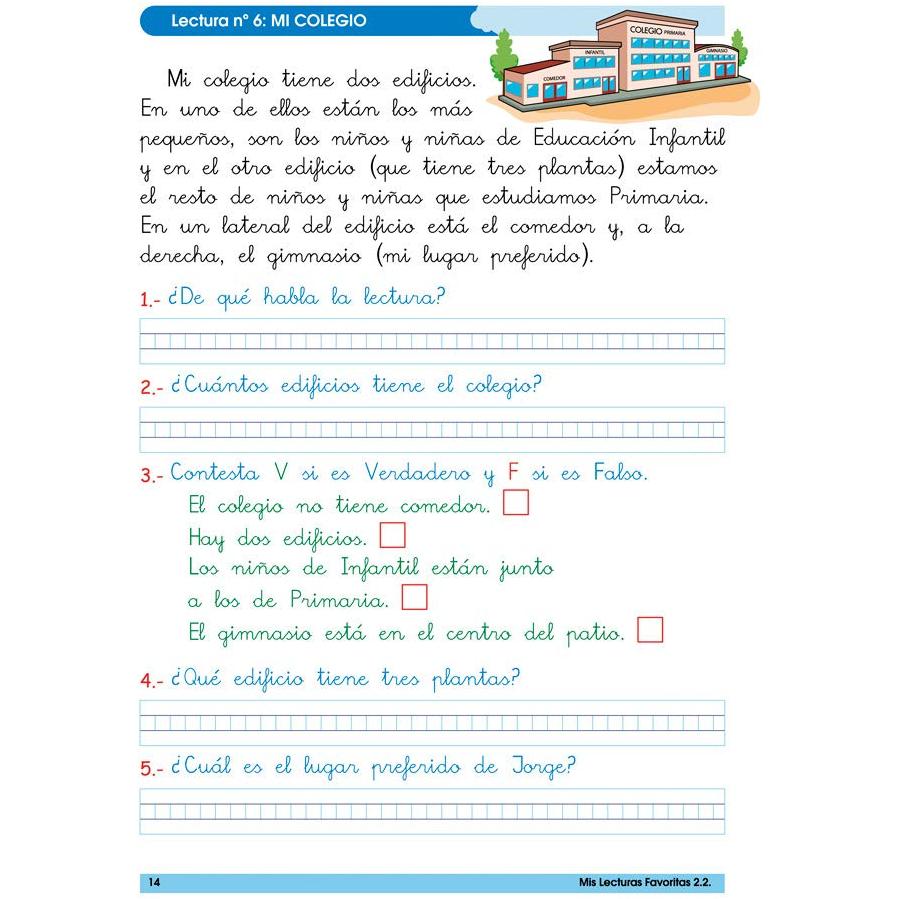 Lectura nº 6: MI COLEGIO
COLEGIO PRIMARIA
INFANTIL
GIMNASIO
COMEDOR
Mi colegio tiene dos edificios.
En uno de ellos están los más
pequeños, son los niños y niñas de Educación Infantil
y en el otro edificio (que tiene tres plantas) estamos
el resto de niños y niñas que estudiamos Primaria.
En un lateral del edificio está el comedor y, a la
derecha, el gimnasio (mi lugar preferido).
1.- ¿De qué habla la lectura?
2.- ¿Cuántos edificios tiene el colegio?
3.- Contesta V si es Verdadero y F si es Falso.
El colegio no tiene comedor.
Hay dos edificios.
Los niños de Infantil están junto
a los de Primaria.
El gimnasio está en el centro del patio.
4.- ¿Qué edificio tiene tres plantas?
5.- ¿Cuál es el lugar preferido de Jorge?
14
Mis Lecturas Favoritas 2.2.